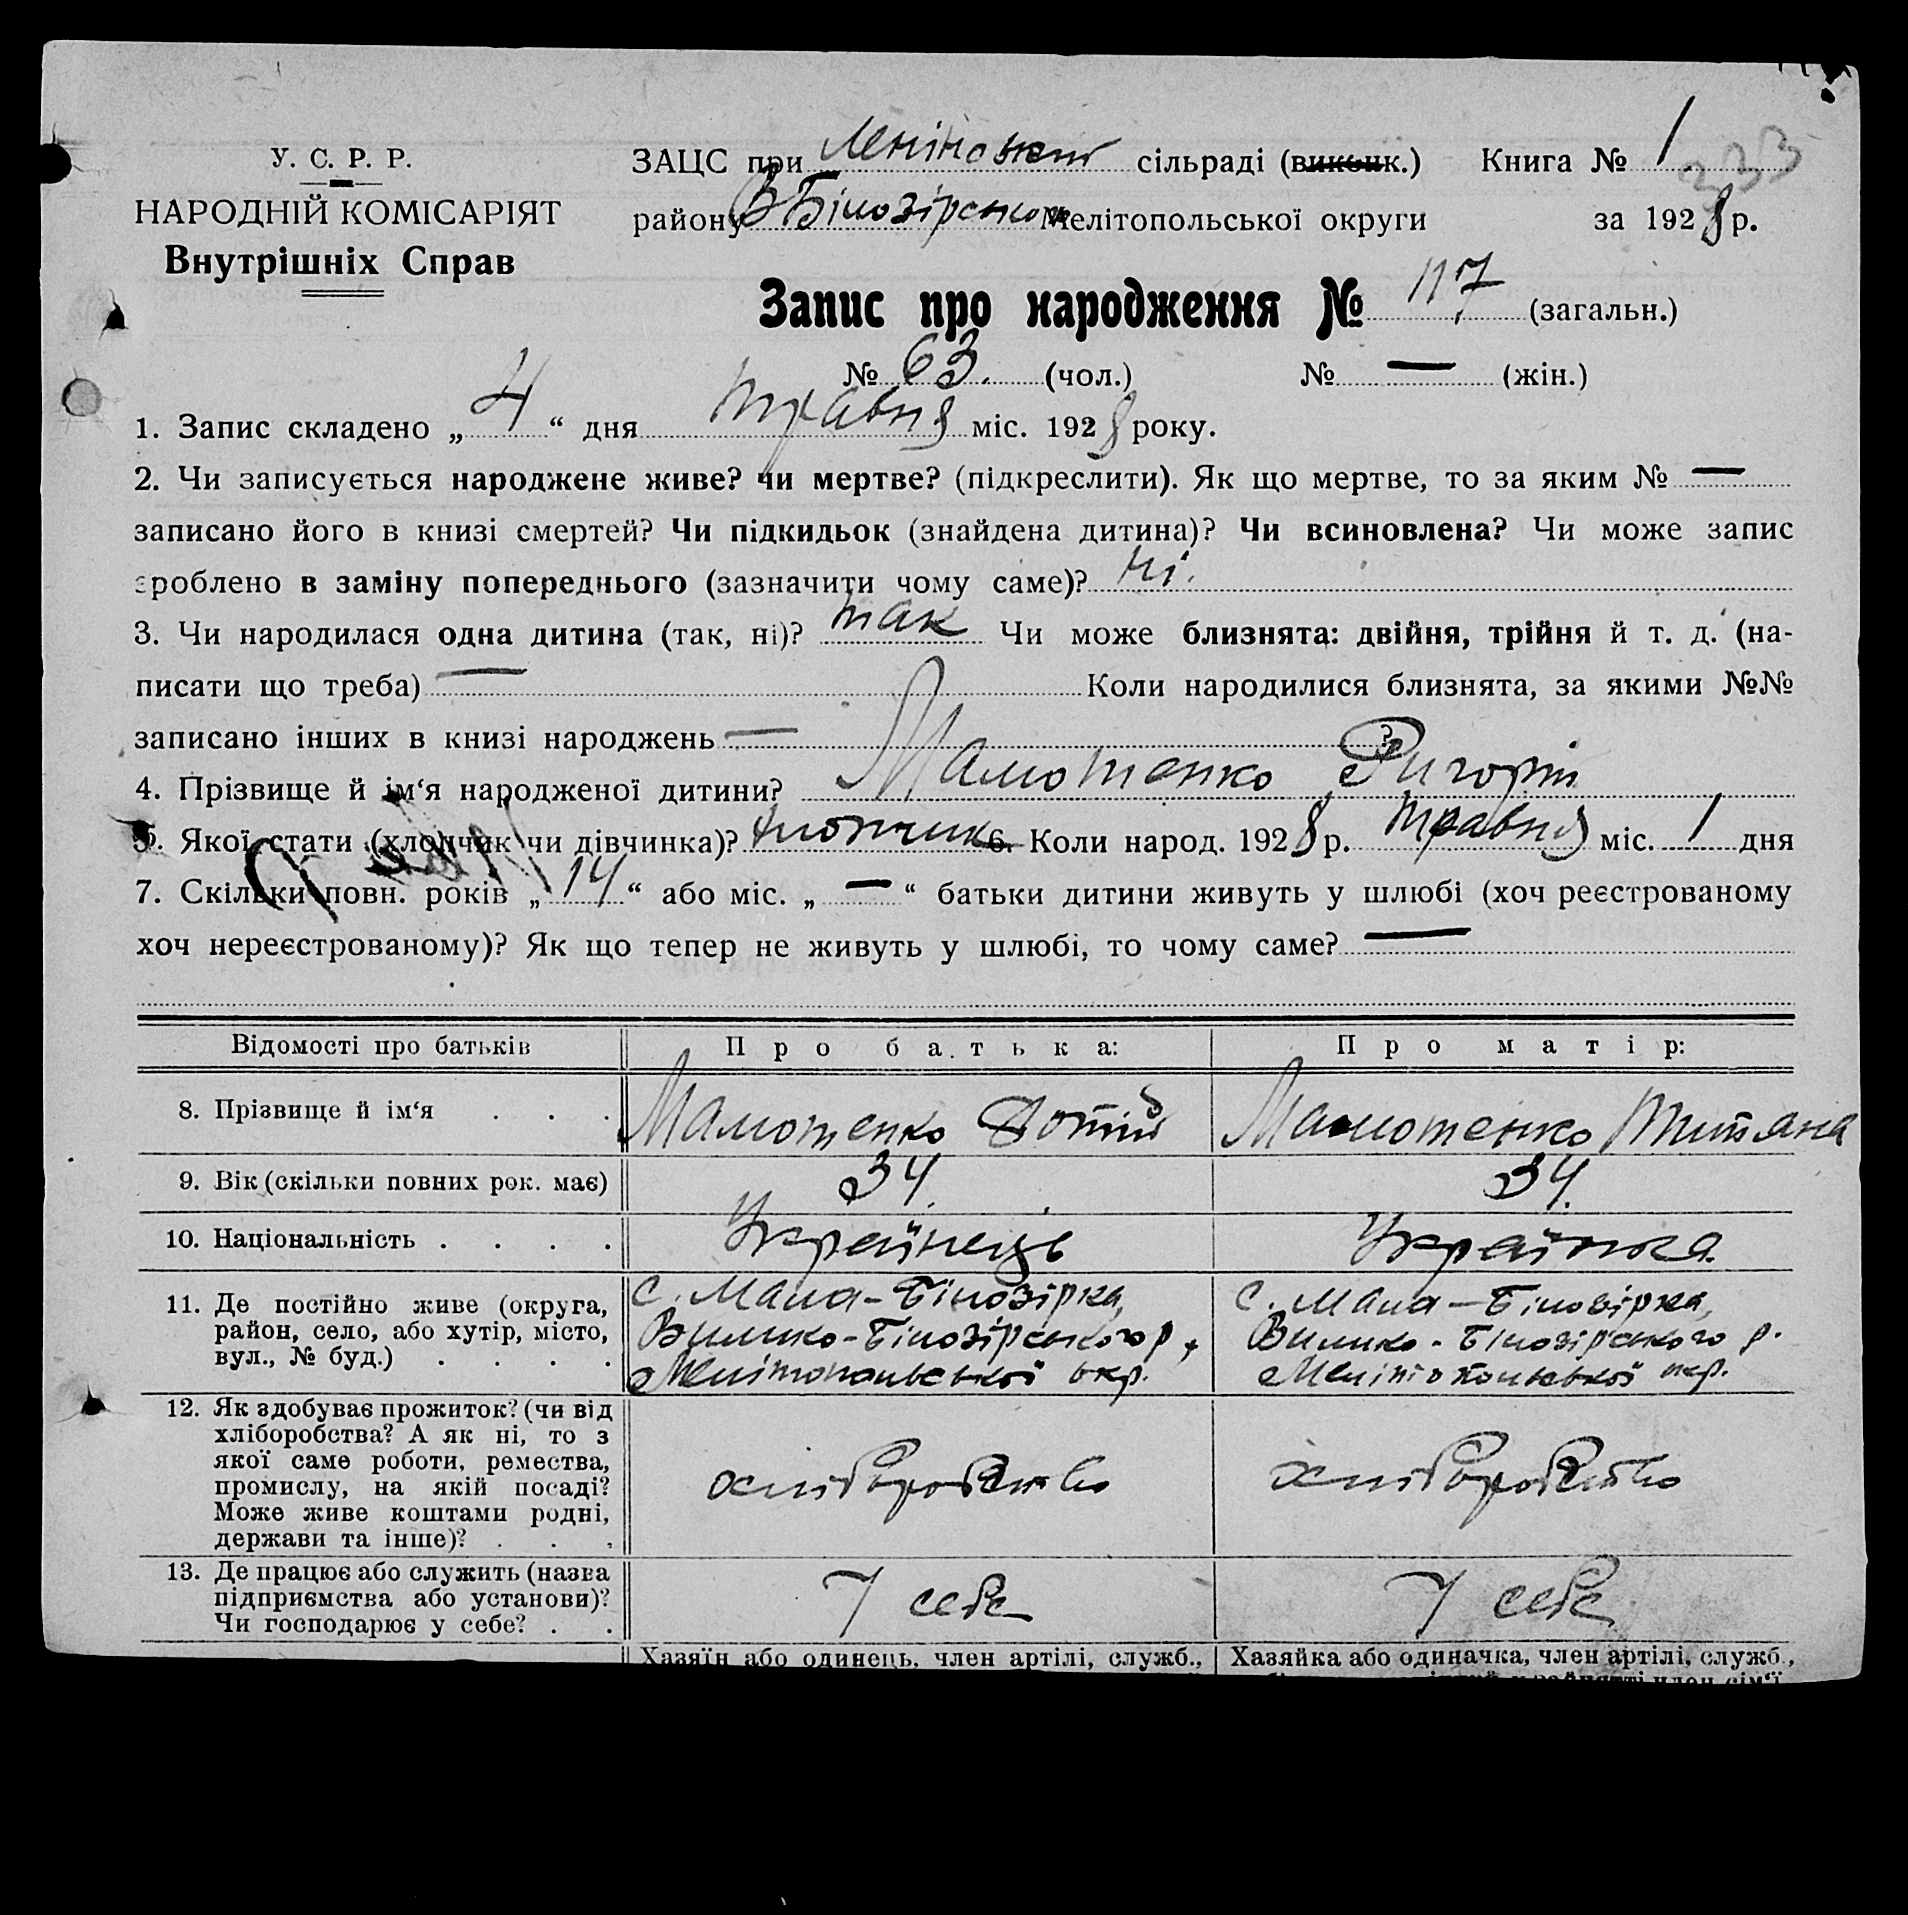 У. С. Р. Р.
НАРОДНІЙ КОМІСАРІЯТ
Внутрішніх Справ
ЗАЦС при Ленінській сільраді (викон​к.) Книга № 1
233
району В Білозірського Мелітопольської округи за 1928 р.
Запис про народження № 117 (загальн.)
№ 63. (чол.) № — (жін.)
1. Запис складено „ 4 “ дня травня міс. 1928 року.
2. Чи записується народжене живе? чи мертве? (підкреслити). Як що мертве, то за яким № —
записано його в книзі смертей? Чи підкидьок (знайдена дитина)? Чи всиновлена? Чи може запис
зроблено в заміну попереднього (зазначити чому саме)? ні.
3. Чи народилася одна дитина (так, ні)? так Чи може близнята: двійня, трійня й т. д. (на-
писати що треба) — Коли народилися близнята, за якими №№
записано інших в книзі народжень — ?
4. Прізвище й ім‘я народженої дитини? Мамотенко Григорій
5. Якої стати (хлопчик чи дівчинка)? хлопчик 6. Коли народ. 1928 р. травня міс. 1 дня
7. Скільки повн. років „ 14 “ або міс. „ — “ батьки дитини живуть у шлюбі (хоч реєстрованому
хоч нереєстрованому)? Як що тепер не живуть у шлюбі, то чому саме? —
Відомості про батьків Про батька: Про матір:
8. Прізвище й ім‘я . . . Мамотенко Фотій Мамотенко Титяна
9. Вік (скільки повних рок. має) 34. 34.
10. Національність . . . . Українець Українка
11. Де постійно живе (округа, район, село, або хутір, місто, вул., № буд.) . . . .
с. Мала-Білозірка, Велико-Білозірського р, Мелітопольської окр.
с. Мала-Білозірка, Велико-Білозірського р. Мелітопольської окр.
12. Як здобуває прожиток? (чи від хліборобства? А як ні, то з якої саме роботи, ремества, промислу, на якій посаді? Може живе коштами родні, держави та інше)? . . .
хліборобство хліборобство
13. Де працює або служить (назва підприємства або установи)? Чи господарює у себе? . .
У себе У себе
Хазяїн або одинець, член артілі, служб., Хазяйка або одиначка, член артілі, служб.,